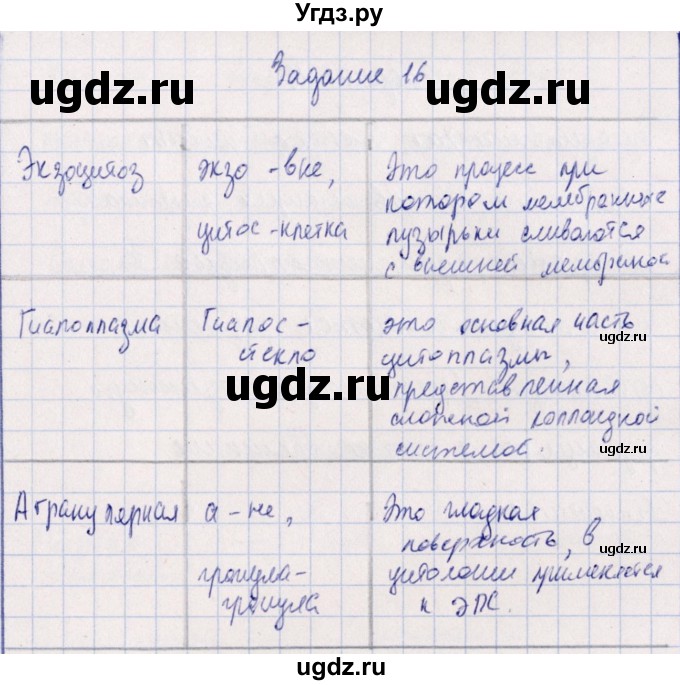 Угдз.ру
Задание 16
ugdz.ru ugdz.ru
Экзоцитоз
экзо - вне,
цитос - клетка
Это процесс при
котором мембранные
пузырьки сливаются
с внешней мембраной
Гиалоплазма
Гиалос -
стекло
ugdz.ru
это основная часть
цитоплазмы,
представленная
сложной коллоидной
системой.
Агранулярная
а - не,
гранула-
гранула
Это гладкая
поверхность, в
цитологии применяется
к ЭПС.
ugdz.ru ugdz.ru
ugdz.ru